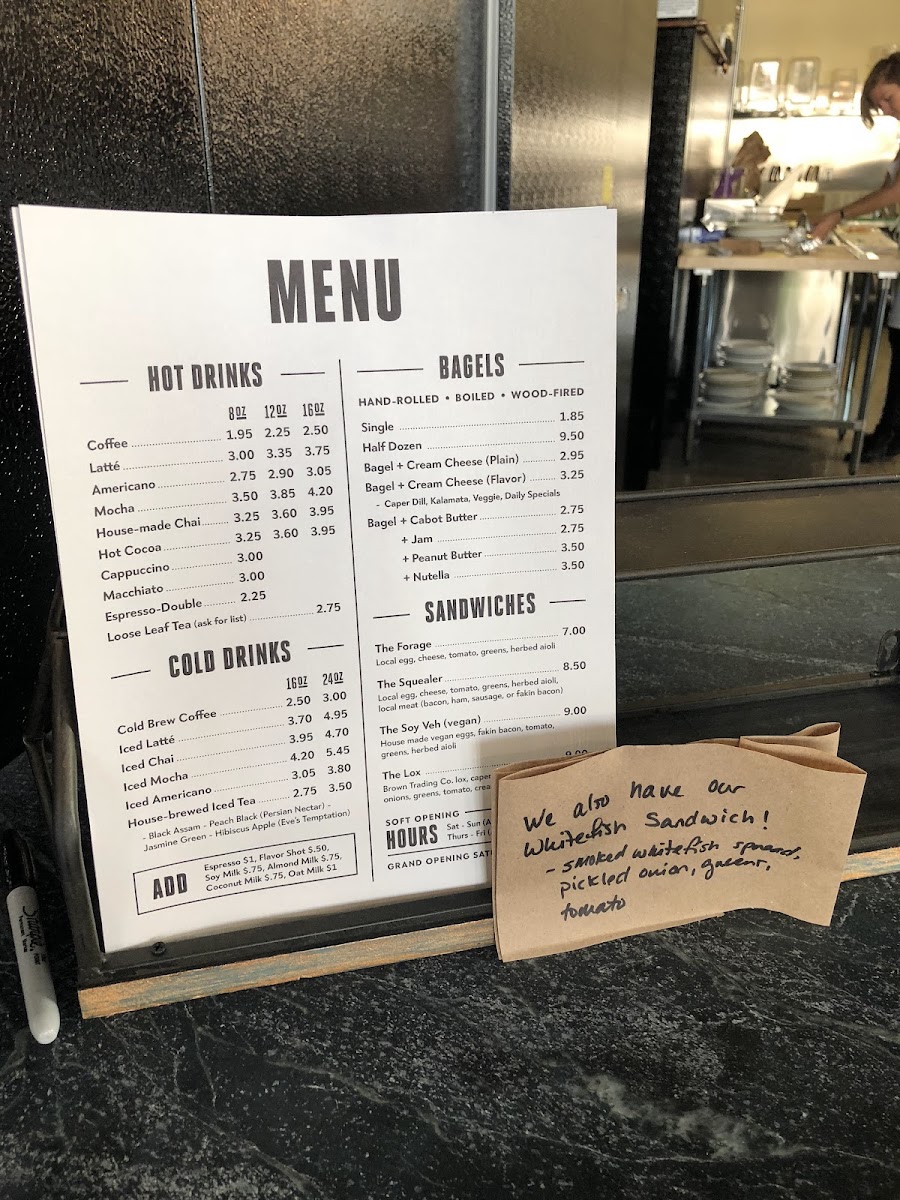 MENU
HOT DRINKS
8OZ 12OZ 16OZ
Coffee 1.95 2.25 2.50
Latté 3.00 3.35 3.75
Americano 2.75 2.90 3.05
Mocha 3.50 3.85 4.20
House-made Chai 3.25 3.60 3.95
Hot Cocoa 3.25 3.60 3.95
Cappuccino 3.00
Macchiato 3.00
Espresso-Double 2.25
Loose Leaf Tea (ask for list) 2.75
COLD DRINKS
16OZ 24OZ
Cold Brew Coffee 2.50 3.00
Iced Latté 3.70 4.95
Iced Chai 3.95 4.70
Iced Mocha 4.20 5.45
Iced Americano 3.05 3.80
House-brewed Iced Tea 2.75 3.50
- Black Assam - Peach Black (Persian Nectar) -
Jasmine Green - Hibiscus Apple (Eve's Temptation)
ADD
Espresso $1, Flavor Shot $.50,
Soy Milk $.75, Almond Milk $.75,
Coconut Milk $.75, Oat Milk $1
BAGELS
HAND-ROLLED • BOILED • WOOD-FIRED
Single 1.85
Half Dozen 9.50
Bagel + Cream Cheese (Plain) 2.95
Bagel + Cream Cheese (Flavor) 3.25
- Caper Dill, Kalamata, Veggie, Daily Specials
Bagel + Cabot Butter 2.75
+ Jam 2.75
+ Peanut Butter 3.50
+ Nutella 3.50
SANDWICHES
The Forage 7.00
Local egg, cheese, tomato, greens, herbed aioli
The Squealer 8.50
Local egg, cheese, tomato, greens, herbed aioli,
local meat (bacon, ham, sausage, or fakin bacon)
The Soy Veh (vegan) 9.00
House made vegan eggs, fakin bacon, tomato,
greens, herbed aioli
The Lox 9.00
Brown Trading Co. lox, caper
onions, greens, tomato, crea
SOFT OPENING
HOURS
Sat - Sun (
Thurs - Fri (
GRAND OPENING SAT
We also have our
Whitefish Sandwich!
- smoked whitefish spread,
pickled onion, greens,
tomato